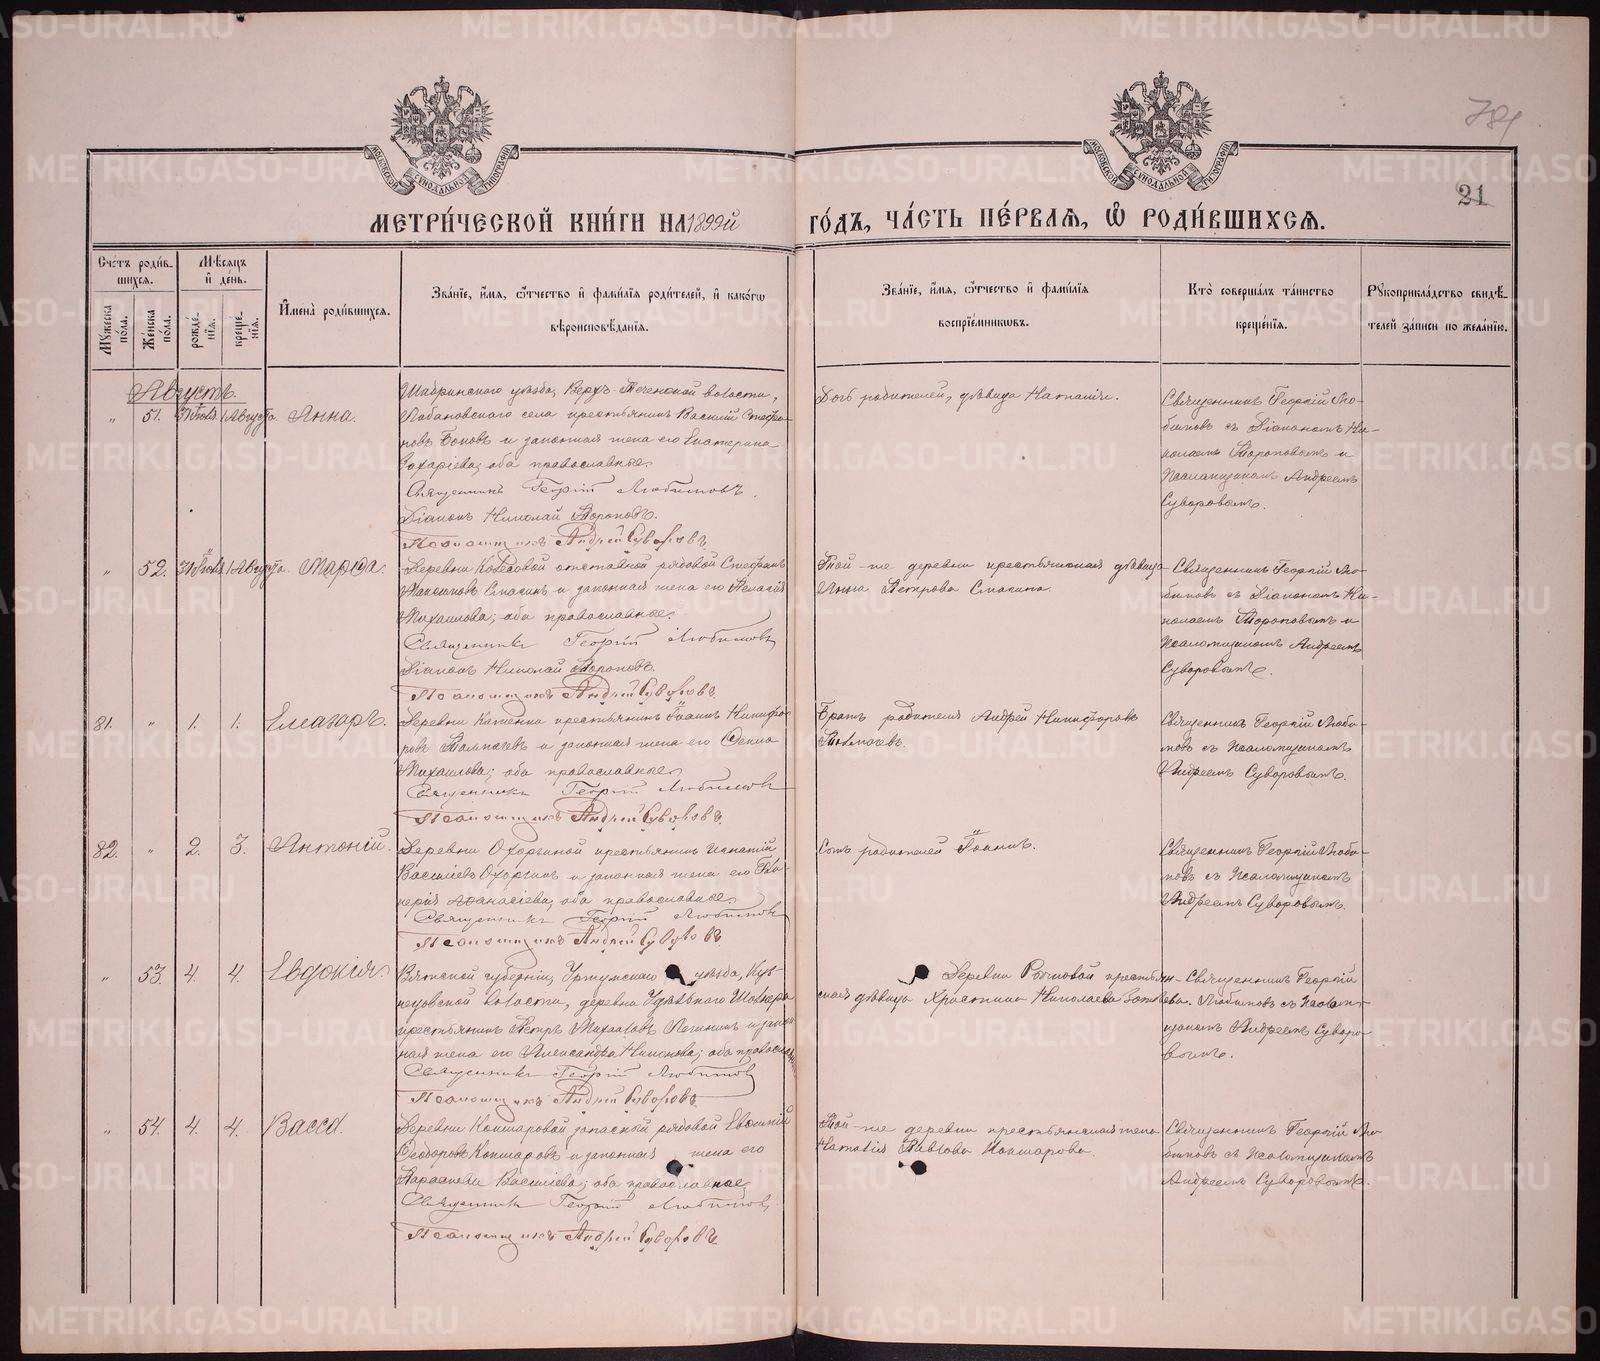 781
21
МЕТРИ́ЧЕСКОЙ КНИ́ГИ НА 1899й ГО́ДЪ, ЧА́СТЬ ПЕ́РВАѦ, Ѽ РОДИ́ВШИХСѦ.
Сче́тъ роди́вшихсѧ.
Мꙋжеска пола.
Же́нска пола.
Мѣ́сѧцъ и҆ де́нь.
рожде́нїѧ.
креще́нїѧ.
И҆мена̀ роди́вшихсѧ.
Зва́нїе, и҆́мѧ, ѻ҆́тчество и҆ фами́лїѧ роди́телей, и҆ како́гѡ вѣроисповѣ́данїѧ.
Зва́нїе, и҆́мѧ, ѻ҆́тчество и҆ фами́лїѧ воспрїе́мниковъ.
Кто̀ соверша́лъ та́инство креще́нїѧ.
Рꙋкоприкла́дство свидѣ́телей за́писи по жела́нїю.
Августъ.
" 51. 31 Іюля 1 Августа Анна.
Шадринскаго уѣзда, Верхъ-Теченской волости,
Лобановскаго села крестьянинъ Василій Стефа-
новъ Боковъ и законная жена его Екатерина
Захаріева, оба православные.
Священникъ Георгій Любимовъ.
Діаконъ Николай Тороповъ.
Псаломщикъ Андрей Суворовъ
Дочь родителей, дѣвица Наталія.
Священникъ Георгій Лю-
бимовъ съ Діакономъ Ни-
колаемъ Тороповымъ и
Псаломщикомъ Андреемъ
Суворовымъ.
" 52. 31 Іюля 1 Августа Марѳа.
Деревни отставной рядовой Стефанъ
Максимовъ и законная жена его Пелагія
Михаилова; оба православные.
Священникъ Георгій Любимовъ
Діаконъ Николай Тороповъ.
Псаломщикъ Андрей Суворовъ
Той-же деревни крестьянская дѣвица
Анна Петрова
Священникъ Георгій Лю-
бимовъ съ Діакономъ Ни-
колаемъ Тороповымъ и
Псаломщикомъ Андреемъ
Суворовымъ.
81. " 1. 1. Елеазаръ.
Деревни крестьянинъ Іоаннъ Никифо-
ровъ Толмачевъ и законная жена его Ѳекла
Михаилова; оба православные
Священникъ Георгій Любимовъ
Псаломщикъ Андрей Суворовъ.
Братъ родителя Андрей Никифоровъ
Толмачевъ.
Священникъ Георгій Люби-
мовъ съ Псаломщикомъ
Андреемъ Суворовымъ.
82. " 2. 3. Антоній.
Деревни крестьянинъ Игнатій
Василіевъ и законная жена его
Аѳанасіева, оба православные.
Священникъ Георгій Любимовъ
Псаломщикъ Андрей Суворовъ.
Сынъ родителей Іоаннъ.
Священникъ Георгій Люби-
мовъ съ Псаломщикомъ
Андреемъ Суворовымъ.
" 53. 4. 4. Евдокія.
Вятской губерніи, Уржумскаго уѣзда, Куз-
нецовской волости, деревни
крестьянинъ Петръ Михаиловъ и закон-
ная жена его Александра; оба православные
Священникъ Георгій Любимовъ
Псаломщикъ Андрей Суворовъ.
Деревни крестьян-
ская дѣвица Христина Николаева
Священникъ Георгій
Любимовъ съ Псалом-
щикомъ Андреемъ Суворо-
вымъ.
" 54. 4. 4. Васса.
Деревни Кокшаровой запасной рядовой Евѳимій
Ѳеодоровъ Кокшаровъ и законная жена его
Параскева Василіева; оба православные
Священникъ Георгій Любимовъ
Псаломщикъ Андрей Суворовъ
Той-же деревни крестьянская жена
Наталія Павлова Кокшарова.
Священникъ Георгій Лю-
бимовъ съ Псаломщикомъ
Андреемъ Суворовымъ.
METRIKI.GASO-URAL.RU